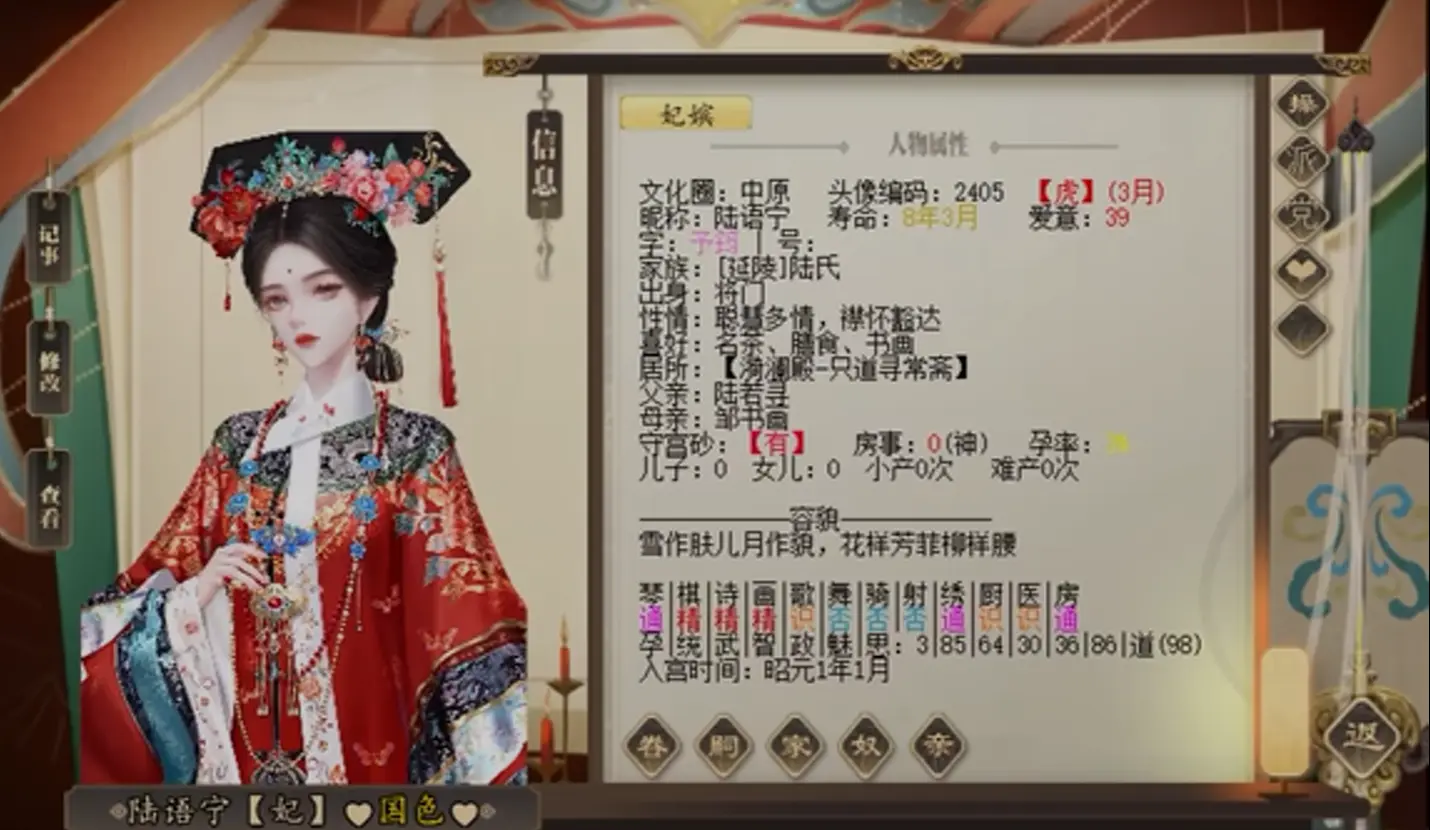 妃嫔
人物属性
信息
记事
修改
查看
文化圈：中原 头像编码：2405 【虎】(3月)
昵称：陆语宁 寿命：8年3月 爱意：39
字：予筠 | 号：
家族：[延陵]陆氏
出身：将门
性情：聪慧多情，襟怀豁达
喜好：名茶、膳食、书画
居所：【漪澜殿-只道寻常斋】
父亲：陆若寻
母亲：邹书画
守宫砂：【有】 房事：0(神) 孕率：
儿子：0 女儿：0 小产0次 难产0次
容貌
雪作肤儿月作貌，花样芳菲柳样腰
琴|棋|诗|画|歌|舞|骑|射|绣|厨|医|房
通|精|精|精|识|否|否|否|通|识|识|通
孕|统|武|智|政|魅|思：3|85|64|30|36|86|道(98)
入宫时间：昭元1年1月
眷 嗣 家 奴 亲
操
派
党
返
陆语宁【妃】国色